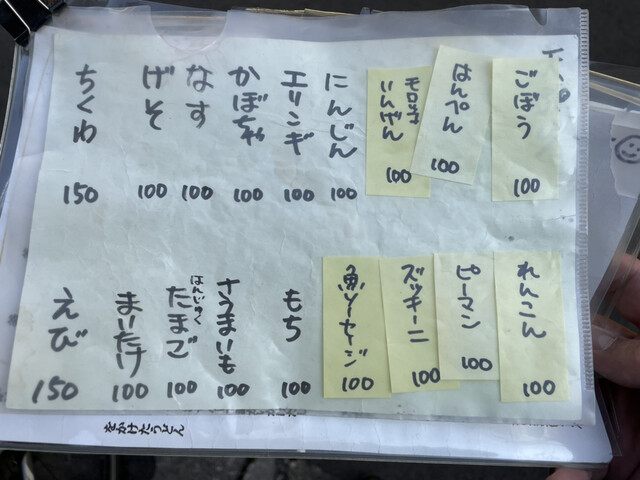 ごぼう 100
はんぺん 100
モロッコいんげん 100
にんじん 100
エリンギ 100
かぼちゃ 100
なす 100
げそ 100
ちくわ 150
れんこん 100
ピーマン 100
ズッキーニ 100
魚ソーセージ 100
もち 100
さつまいも 100
はんじゅくたまご 100
まいたけ 100
えび 150
きかけたうどん